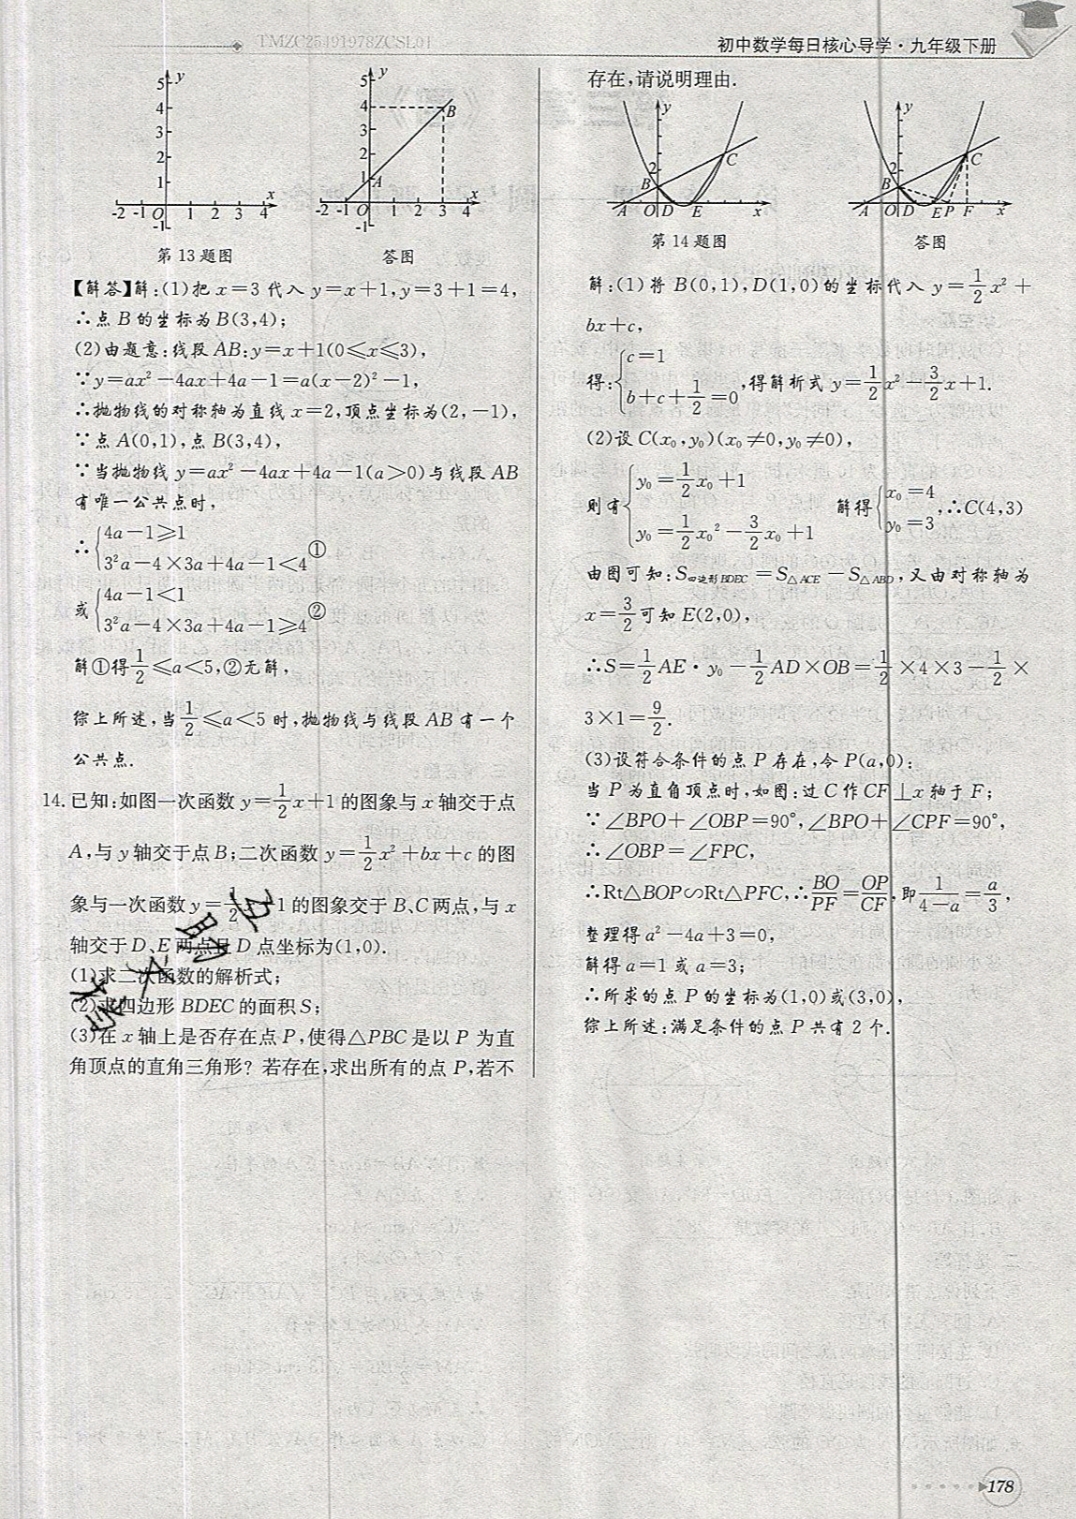 TMZC25491978ZCSL01
初中数学每日核心导学·九年级下册
第13题图
答图
【解答】解:(1)把 x=3 代入 y=x+1,y=3+1=4,
∴点 B 的坐标为B(3,4);
(2)由题意:线段 AB:y=x+1(0≤x≤3),
∵y=ax²-4ax+4a-1=a(x-2)²-1,
∴抛物线的对称轴为直线 x=2,顶点坐标为(2,-1),
∵点 A(0,1),点 B(3,4),
∵当抛物线 y=ax²-4ax+4a-1(a>0)与线段 AB
有唯一公共点时,
∴{4a-1≥1
3²a-4×3a+4a-1<4 ①
或{4a-1<1
3²a-4×3a+4a-1≥4 ②
解①得1/2≤a<5,②无解,
综上所述,当1/2≤a<5 时,抛物线与线段 AB 有一个
公共点.
14. 已知:如图一次函数 y=1/2x+1 的图象与 x 轴交于点
A,与 y 轴交于点 B;二次函数 y=1/2x²+bx+c 的图
象与一次函数 y=1/2x+1 的图象交于 B、C 两点,与 x
轴交于 D、E 两点且 D 点坐标为(1,0).
(1)求二次函数的解析式;
(2)求四边形 BDEC 的面积 S;
(3)在 x 轴上是否存在点 P,使得△PBC 是以 P 为直
角顶点的直角三角形? 若存在,求出所有的点 P,若不
存在,请说明理由.
第14题图
答图
解:(1)将 B(0,1),D(1,0)的坐标代入 y=1/2x²+
bx+c,
得:{c=1
b+c+1/2=0,得解析式 y=1/2x²-3/2x+1.
(2)设 C(x₀,y₀)(x₀≠0,y₀≠0),
则有{y₀=1/2x₀+1
y₀=1/2x₀²-3/2x₀+1 解得{x₀=4
y₀=3,∴C(4,3)
由图可知:S四边形BDEC=S△ACE-S△ABD,又由对称轴为
x=3/2可知 E(2,0),
∴S=1/2AE·y₀-1/2AD×OB=1/2×4×3-1/2×
3×1=9/2.
(3)设符合条件的点 P 存在,令 P(a,0):
当 P 为直角顶点时,如图:过 C 作 CF⊥x 轴于 F;
∵∠BPO+∠OBP=90°,∠BPO+∠CPF=90°,
∴∠OBP=∠FPC,
∴Rt△BOP∽Rt△PFC,∴BO/PF=OP/CF,即1/(4-a)=a/3,
整理得 a²-4a+3=0,
解得 a=1 或 a=3;
∴所求的点 P 的坐标为(1,0)或(3,0),
综上所述:满足条件的点 P 共有 2 个.
178